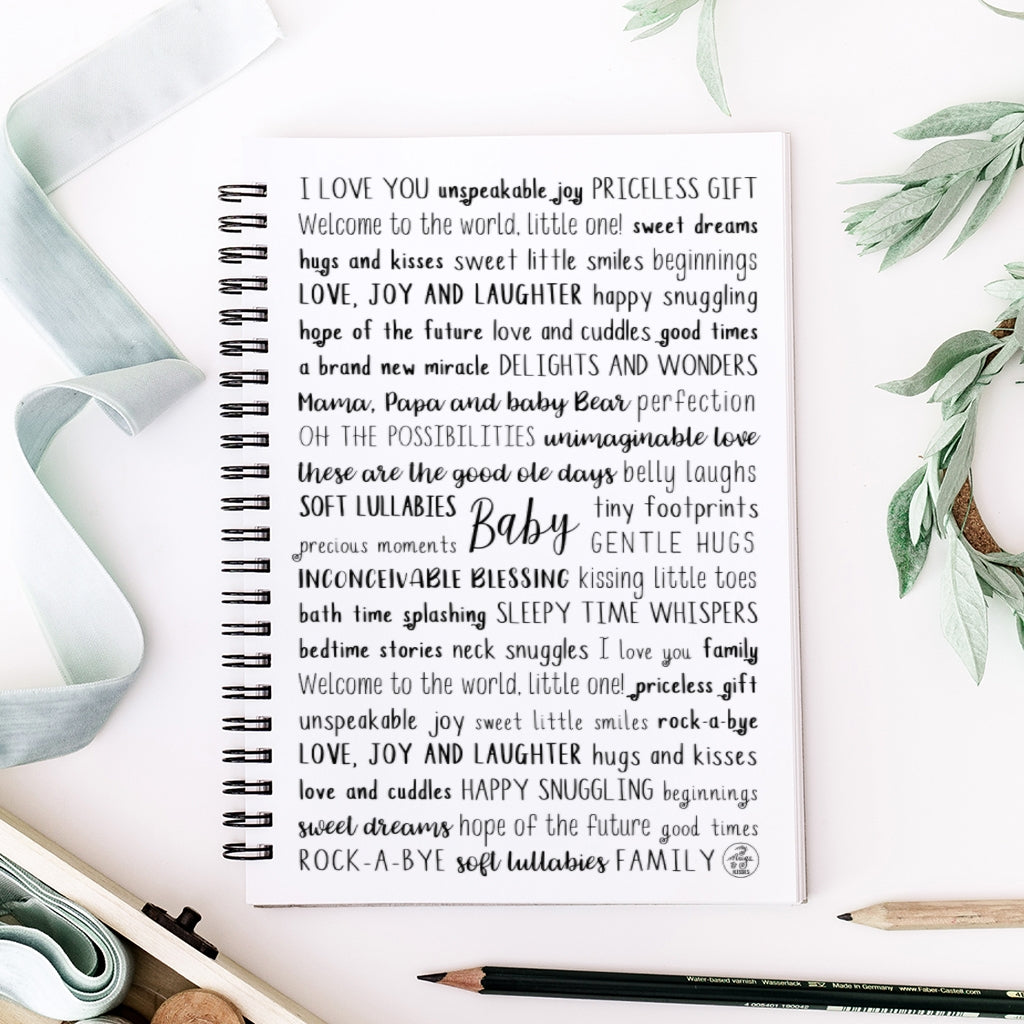 I LOVE YOU unspeakable joy PRICELESS GIFT
Welcome to the world, little one! sweet dreams
hugs and kisses sweet little smiles beginnings
LOVE, JOY AND LAUGHTER happy snuggling
hope of the future love and cuddles good times
a brand new miracle DELIGHTS AND WONDERS
Mama, Papa and baby Bear perfection
OH THE POSSIBILITIES unimaginable love
these are the good ole days belly laughs
SOFT LULLABIES Baby tiny footprints
precious moments GENTLE HUGS
INCONCEIVABLE BLESSING kissing little toes
bath time splashing SLEEPY TIME WHISPERS
bedtime stories neck snuggles I love you family
Welcome to the world, little one! priceless gift
unspeakable joy sweet little smiles rock-a-bye
LOVE, JOY AND LAUGHTER hugs and kisses
love and cuddles HAPPY SNUGGLING beginnings
sweet dreams hope of the future good times
ROCK-A-BYE soft lullabies FAMILY
Hugs
KISSES
Water-based varnish Wasserlack Made in Germany www.Faber-Castell.com
4 005401 190042